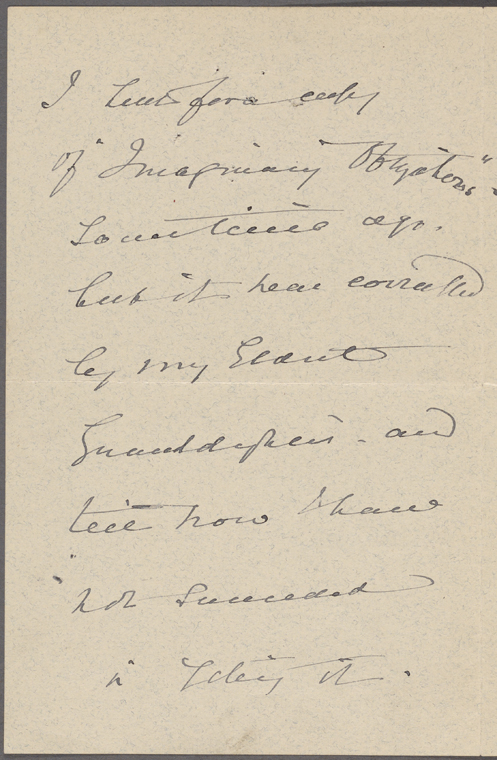 I sent for a copy
of "Imaginary Obligations"
sometime ago.
but it was corralled
by my Eldest
Granddaughter - and
till now I have
not succeeded
in getting it.